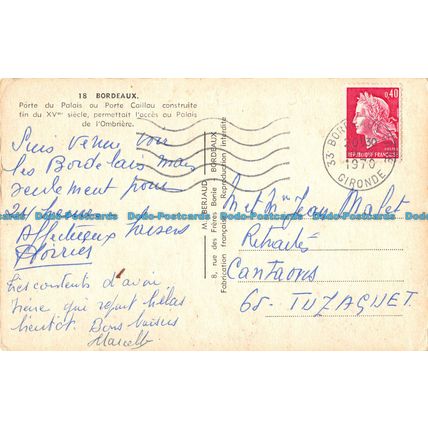 18 BORDEAUX.
Porte du Palais ou Porte Caillau construite
fin du XVme siècle, permettait l'accès au Palais
de l'Ombrière.
Suis venu voir
les Bordelais mais
seulement pour
24 heures
Affectueux baisers
M. BERJAUD
8, rue des Frères Bonie / BORDEAUX
Fabrication française / Reproduction interdite
0,40
REPUBLIQUE FRANÇAISE
33 BORD
1970
GIRONDE
Met Mme Jean Malet
Retraités
Cantaous
65- TUZAGUET
Dodo-Postcards Dodo-Postcards Dodo-Postcards Dodo-Postcards
Très contents d'avoir
Irène qui repart hélas
bientôt. Bons baisers
Marcelle